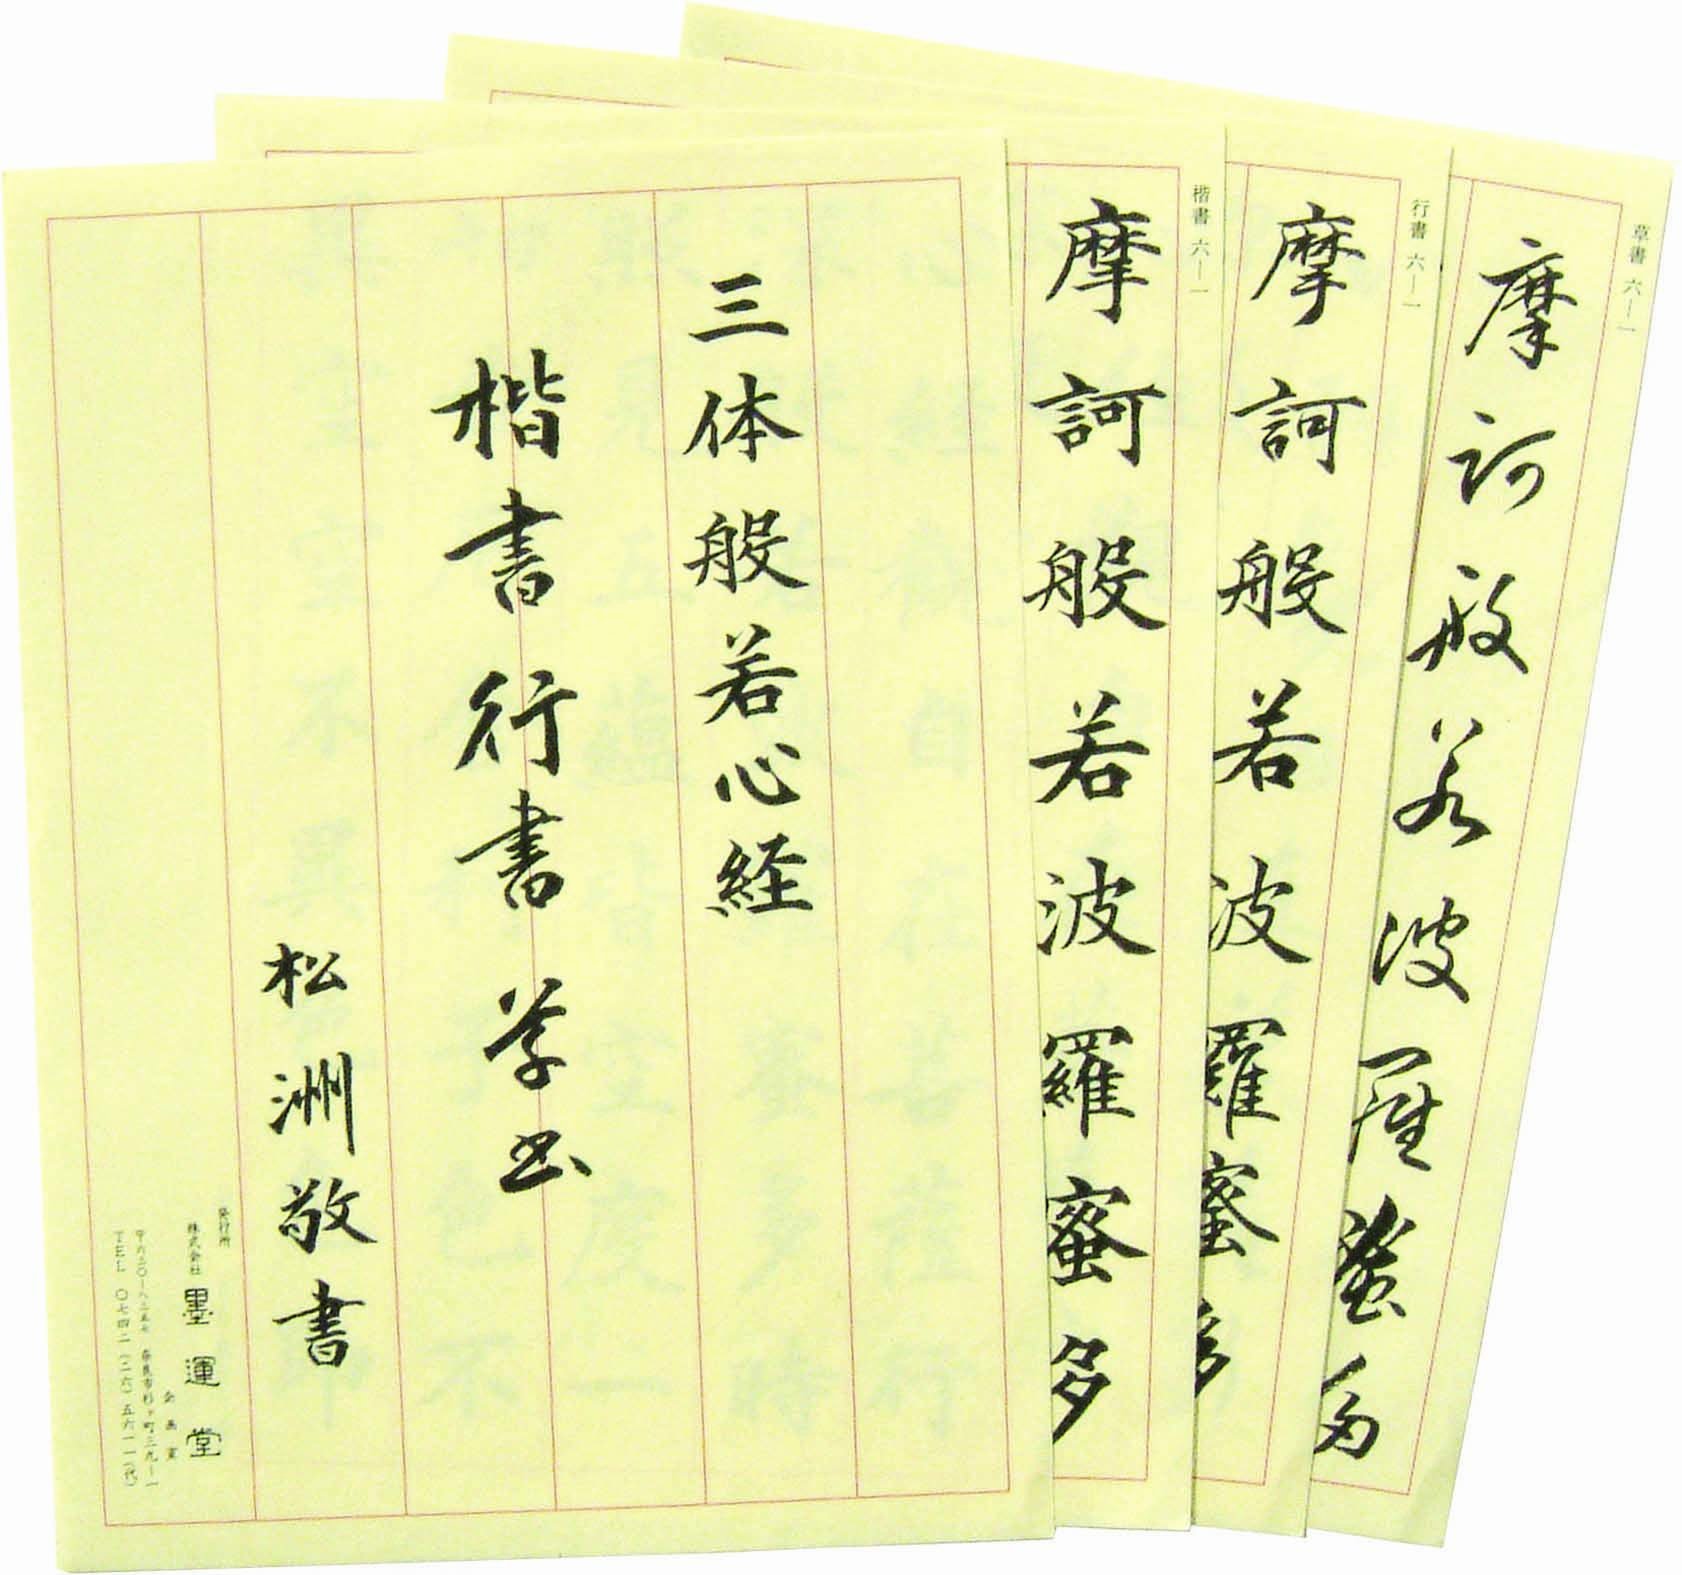 三体般若心経
楷書行書草書
松洲敬書
発行所
株式会社 墨運堂
企画室
〒六三〇-八三五七 奈良市杉ヶ町三九-一
TEL 〇七四二(二六)五六一一(代)
楷書 六-一
摩訶般若波羅蜜多
行書 六-一
摩訶般若波羅蜜多
草書 六-一
摩訶般若波羅蜜多